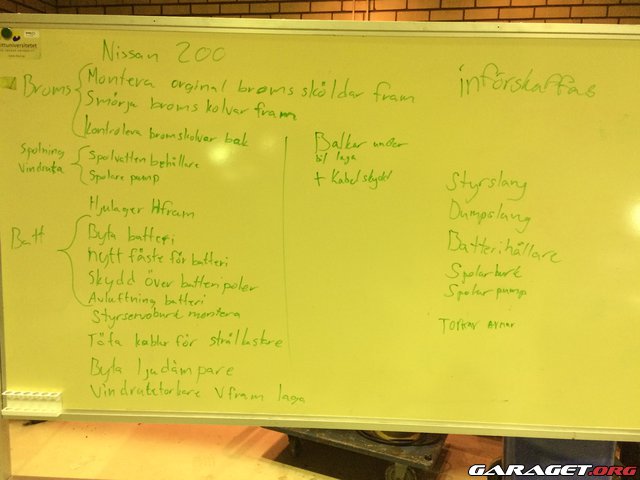 Nissan 200
Broms
Montera orginal broms sköldar fram
Smörja broms kolvar fram
kontrolera bromskolvar bak
Spolning
vindruta
Spolvatten behållare
Spolare pump
Hjulager Hfram
Batt
Byta batteri
nytt fäste för batteri
Skydd över batteri poler
Avluftning batteri
Styrservoburk montera
Täta kablar för strålkastare
Byta ljudämpare
Vindrutetorkare Vfram laga
Balkar under
bil laga
+ Kabelskydd
införskaffas
Styrslang
Dumpslang
Batterihållare
Spolarburk
Spolar pump
Torkar armar
GARAGET.ORG